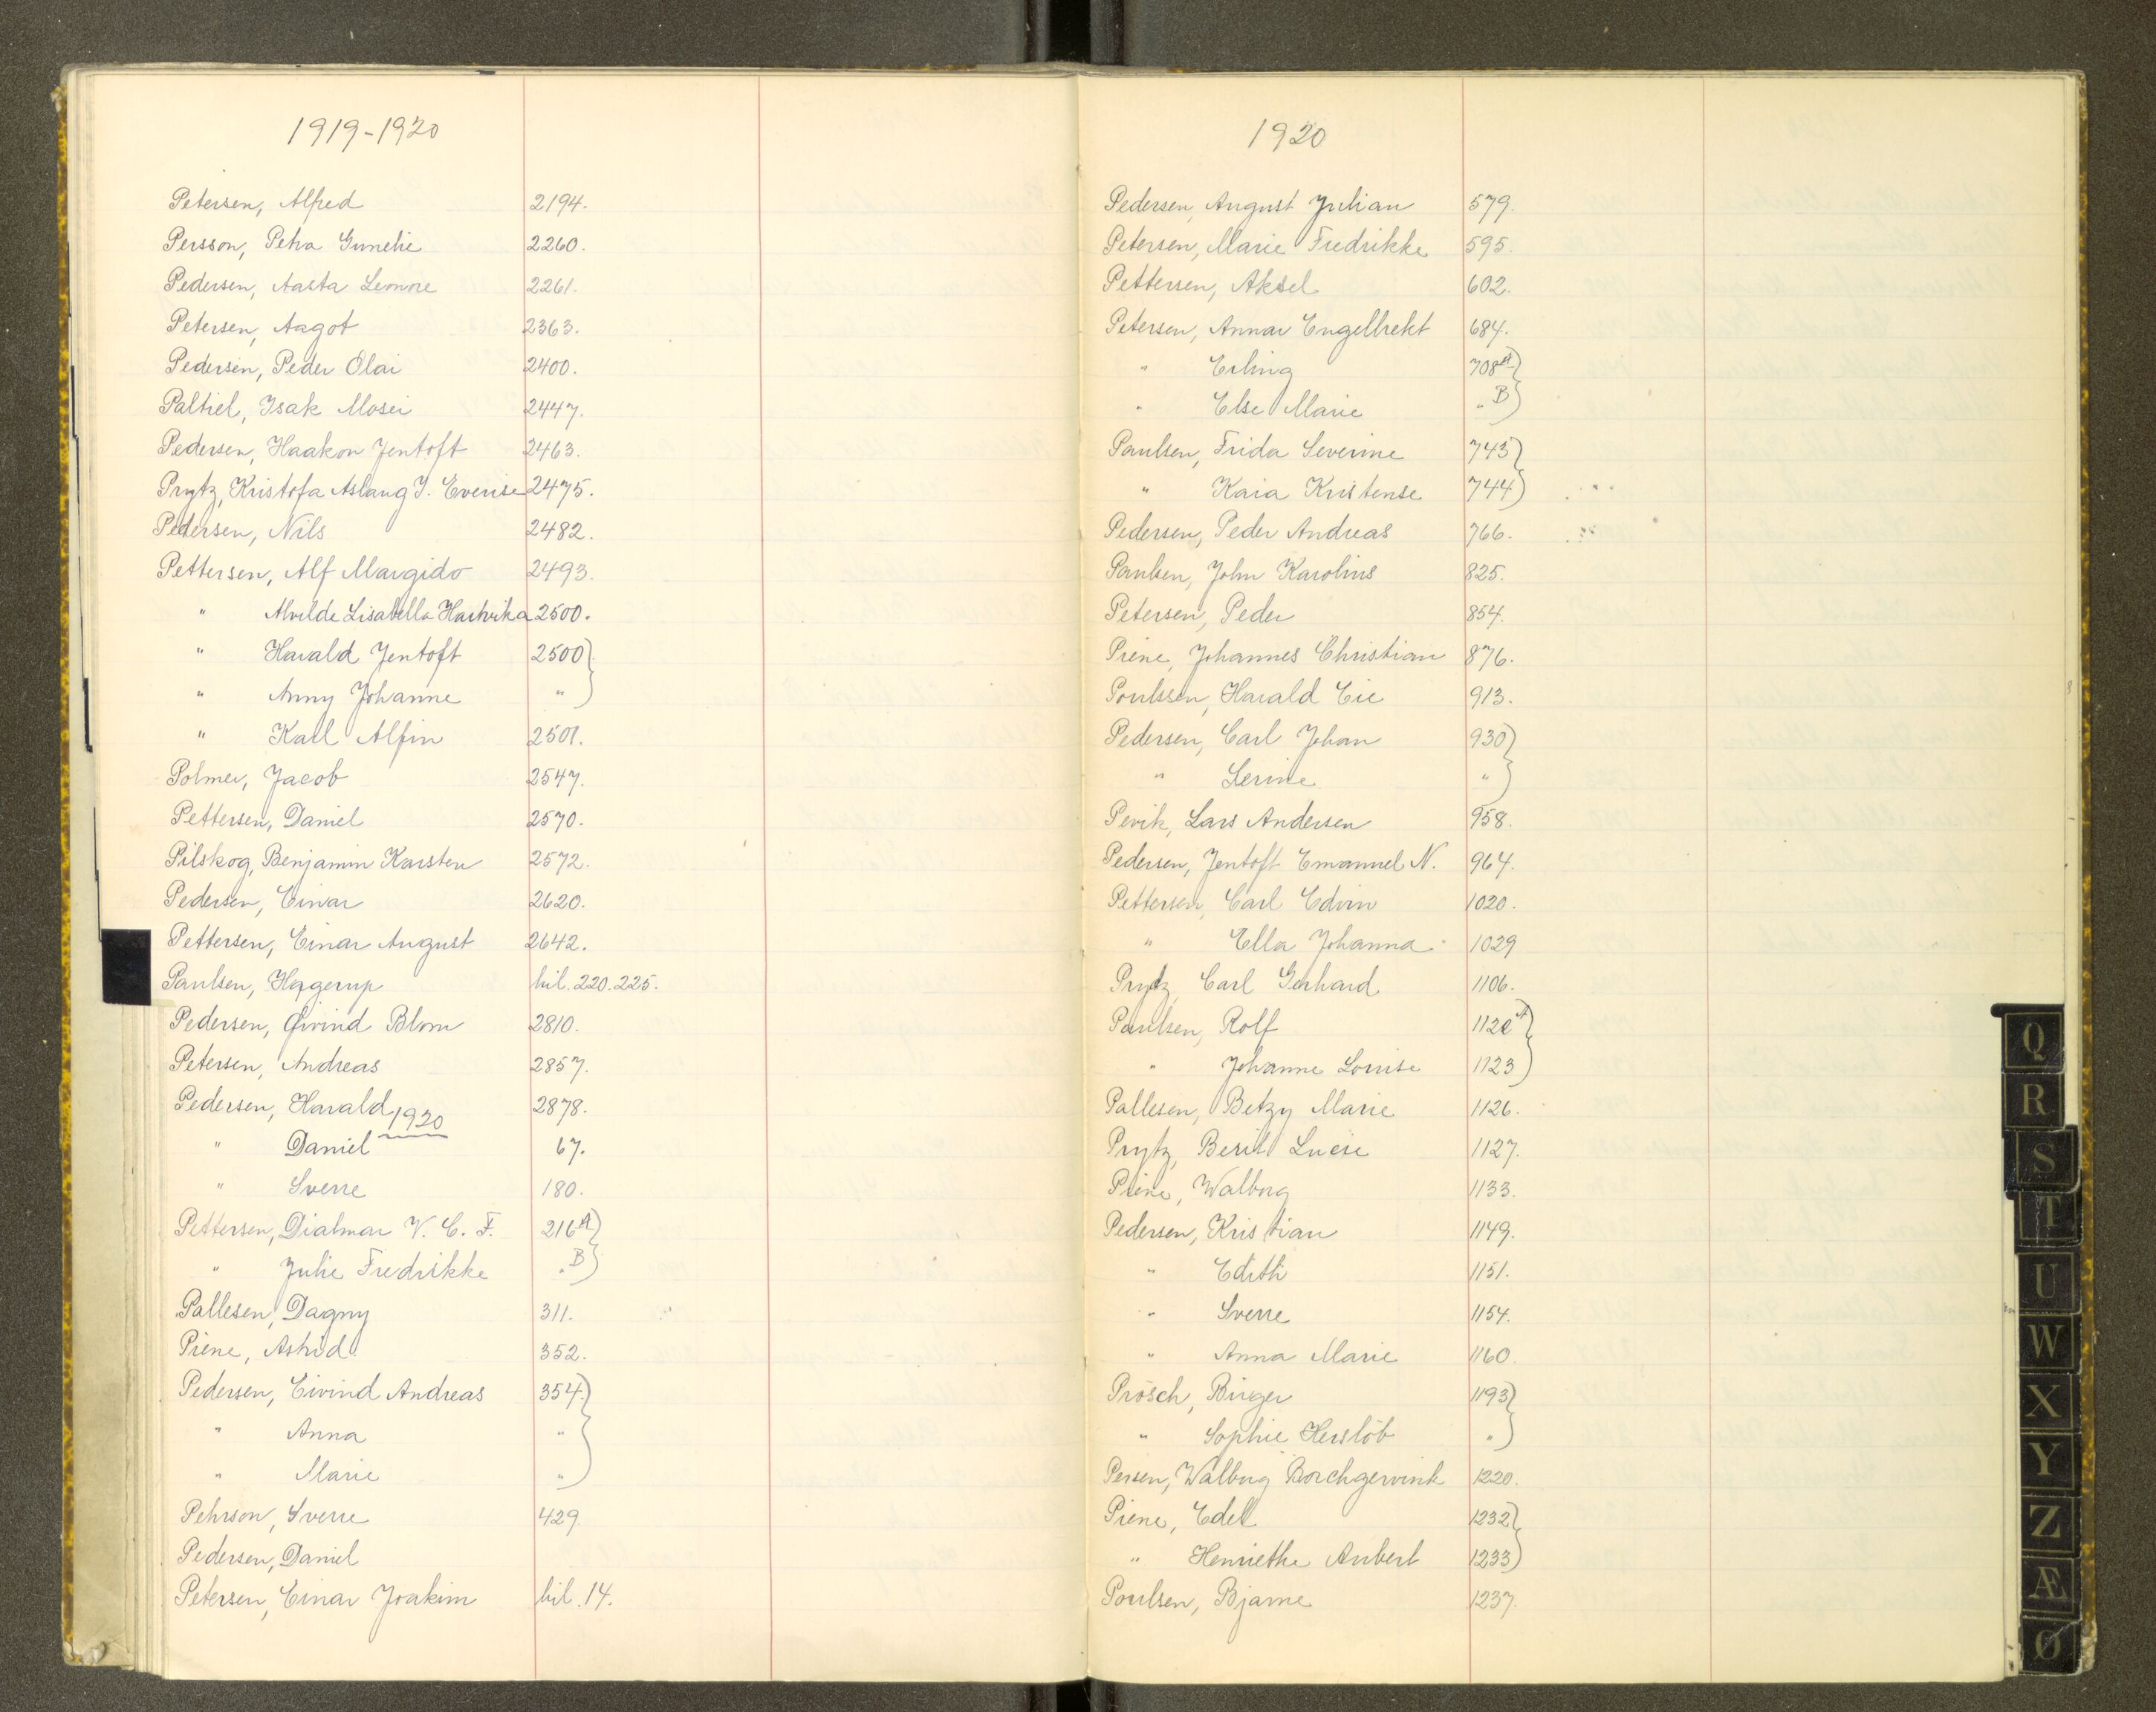 1919-1920
Petersen, Alfred 2194.
Persson, Petra Gunelie 2260.
Pedersen, Aasta Leonore 2261.
Petersen, Aagot 2363.
Pedersen, Peder Olai 2400.
Paltiel, Isak Mosei 2447.
Pedersen, Haakon Jentoft 2463.
Prytz, Kristofa Aslaug J. Everise 2475.
Pedersen, Nils 2482.
Pettersen, Alf Margido 2493.
" Alvilde Lisabella Hartvika 2500.
" Harald Jentoft 2500 }
" Anny Johanne " }
" Karl Alfin 2501.
Polmer, Jacob 2547.
Pettersen, Daniel 2570.
Pilskog, Benjamin Karsten 2572.
Pedersen, Einar 2620.
Pettersen, Einar August 2642.
Paulsen, Hagerup bil. 220. 225.
Pedersen, Øivind Blom 2810.
Petersen, Andreas 2857.
Pedersen, Harald 2878.
1920
" Daniel 67.
" Sverre 180.
Pettersen, Dialmar V. C. F. 216 A }
" Julie Fredrikke " B }
Pallesen, Dagny 311.
Piene, Astrid 352.
Pedersen, Eivind Andreas 354. }
" Anna " }
" Marie " }
Pehrson, Sverre 429
Pedersen, Daniel
Petersen, Einar Joakim bil. 14.
1920
Pedersen, August Julian 579.
Petersen, Marie Fredrikke 595.
Pettersen, Aksel 602.
Petersen, Annar Engelbrekt 684.
" Erling 708 A }
" Else Marie " B }
Paulsen, Frida Severine 743 }
" Kaia Kristense 744 }
Pedersen, Peder Andreas 766.
Paulsen, John Karolius 825.
Petersen, Peder 854.
Piene, Johannes Christian 876.
Poulssen, Harald Eie 913.
Pedersen, Carl Johan 930 }
" Serine " }
Pevik, Lars Andersen 958.
Pedersen, Jentoft Emanuel N. 964.
Pettersen, Carl Edvin 1020.
" Ella Johanna 1029
Prytz, Carl Gerhard 1106.
Paulsen, Rolf A }
" Johanne Louise 1123 }
Pallesen, Betzy Marie 1126.
Prytz, Berit Lucie 1127.
Piene, Walborg 1133.
Pedersen, Kristian 1149.
" Edith 1151.
" Sverre 1154.
" Anna Marie 1160.
Prösch, Birger 1193 }
" Sophie Herslöb " }
Persen, Walborg Borchgervink 1220.
Piene, Edel 1232 }
" Henriethe Aubert 1233 }
Poulsen, Bjarne 1237.
Q
R
S
T
U
W
X
Y
Z
Æ
Ø